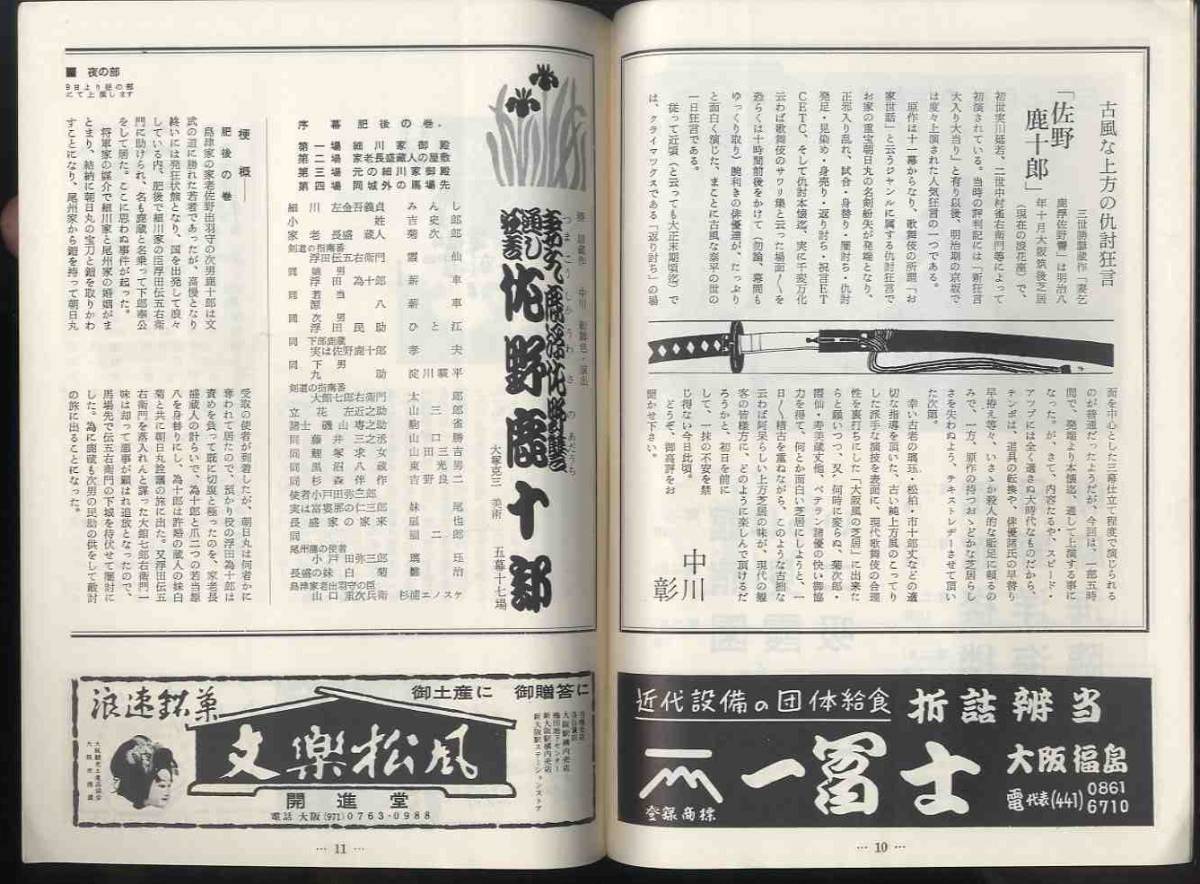 古風な上方の仇討狂言
「佐野
鹿十郎」
三世勝諺蔵作「妻乞
鹿浮佐野讐」は明治八
年十月大阪筑後芝居
（現在の浪花座）で、
初世実川延若、二世中村雀右衛門等によって
初演されている。当時の評判記には「新狂言
大入り大当り」と有り以後、明治期の京坂で
は度々上演された人気狂言の一つである。
原作は十一幕からなり、歌舞伎の所謂「お
家世話」と云うジャンルに属する仇討狂言で
お家の重宝朝日丸の名剣紛失が発端となり、
正邪入り乱れ、試合・身替り・闇討ち・仇討
発足・見染め・身売り・返り討ち・祝言ET
CETC、そして仇討本懐迄、実に千変万化
云わば歌舞伎のサワリ集と云った場面〳〵を
恐らくは十時間前後をかけて（勿論、幕間も
ゆっくり取り）腕利きの俳優達が、たっぷり
と面白く演じた、まことに古風な泰平の世の
一日狂言である。
従って近頃（と云っても大正末期頃迄）で
は、クライマックスである「返り討ち」の場
面を中心とした三幕仕立て程度で演じられる
のが普通だったようだが、今回は、一部五時
間で、発端より本懐迄、通して上演する事に
なった。が、さて、内容たるや、スピード・
アップには全く適さぬ大時代なものだから、
テンポは、道具の転換や、俳優諸氏の早替り
早拵え等々、いさゝか殺人的な駈足に頼るの
みで、一方、原作の持つおゝどかな芝居らし
さを失わぬよう、テキストレヂーさせて頂い
た次第。
幸い古老の璃珏・松柏・市十郎丈などの適
切な指導を頂いた、古い純上方風のこってり
した派手な演技を表面に、現代歌舞伎の合理
性を裏打ちにした「大阪風の芝居」に出来た
らと願いつつ、又、何時に変らぬ、菊次郎・
霞仙・寿美蔵丈他、ベテラン諸優の快い御協
力を得て、何とか面白い芝居にしようと、一
日〳〵稽古を重ねながら、このような古拙な
云わば阿呆らしい上方芝居の味が、現代の観
客の皆様方に、どのように楽しんで頂けるだ
ろうかと、初日を前に
して、一抹の不安を禁
じ得ない今日此頃。
どうぞ、御高評をお
聞かせ下さい。
中川
彰
近代設備の団体給食
折詰辨当
登録商標
一冨士
大阪福島
電代表(441)
0861
6710
… 10 …
■ 夜の部
9日より昼の部
にて上演します
勝 諺蔵 作
中川 彰 脚色・演出
つまこうしかうわさのあだうち
妻乞鹿浮佐野讐
通し狂言
佐野鹿十郎
五幕十七場
大塚克三 美術
序幕 肥後の巻
第一場 細川家御殿
第二場 家老長盛蔵人の屋敷
第三場 元の細川家御殿
第四場 同 城外の馬場先
細川左金吾義貞 みんし
小姓 吉史郎
家老長盛蔵人 菊次郎
剣道の指南番
浮田伝五右衛門 霞仙
同 嫡男
浮田為十郎 新車
同 若当
源八 新車
同 次男
浮田民助 ひと江
同 下郎鹿蔵
実は佐野鹿十郎 孝夫
同 下男
九助 淀川駿平
剣道の指南番
大館七郎右衛門 太郎
立花左近之助 山三郎
諸士磯山専之助 駒雀
同 藤井三之丞 山口勝
同 鯉塚求女 山田三吉
同 黒沼八蔵 東光男
同 杉森伴作 吉野良二
使者小戸田弥三郎
実は富婁那の仁三郎 妹尾
長盛家の家来 扇也
同 扇二郎
尾州藩の使者
小戸田弥三郎 璃珏
長盛の妹白菊 鶴治
島津家老出羽守の臣
山口重次兵衛 杉浦エノスケ
梗概
肥後の巻
島津家の家老佐野出羽守の次男鹿十郎は文
武の道に勝れた若者であったが、高慢となり
終いには発狂状態となり、国を出発して浪々
している内、肥後で細川家の臣浮田伝五右衛
門に助けられ、名も鹿蔵と名乗って下郎奉公
をして居た。ここに思わぬ事件が起った。
将軍家の媒介で細川家と尾州家の婚姻がま
とまり、結納に朝日丸の宝刀と鎧を取りかわ
すことになり、尾州家から鎧を持って朝日丸
受取の使者が到着したが、朝日丸は何者かに
奪われて居たので、預かり役の浮田為十郎は
責めを負って既に切腹と極ったのを、家老長
盛蔵人の計らいで、為十郎と爪二つの若当源
八を身替りにし、為十郎は許婚の蔵人の妹白
菊と共に朝日丸詮議の旅に出た。又浮田伝五
右衛門を落入れんと謀った大館七郎右衛門一
味は却って悪事が顕れ追放となったので、
馬場先で伝五右衛門の下城を待伏せて闇討に
した。為に鹿蔵も次男の民助の供をして敵討
の旅に出ることになった。
浪速銘菓
御土産に 御贈答に
文楽松風
開進堂
電話 大阪(971)0763・0988
大阪駅構内売店
梅田地下センター
新大阪駅構内売店
新大阪駅ステーションストア
… 11 …